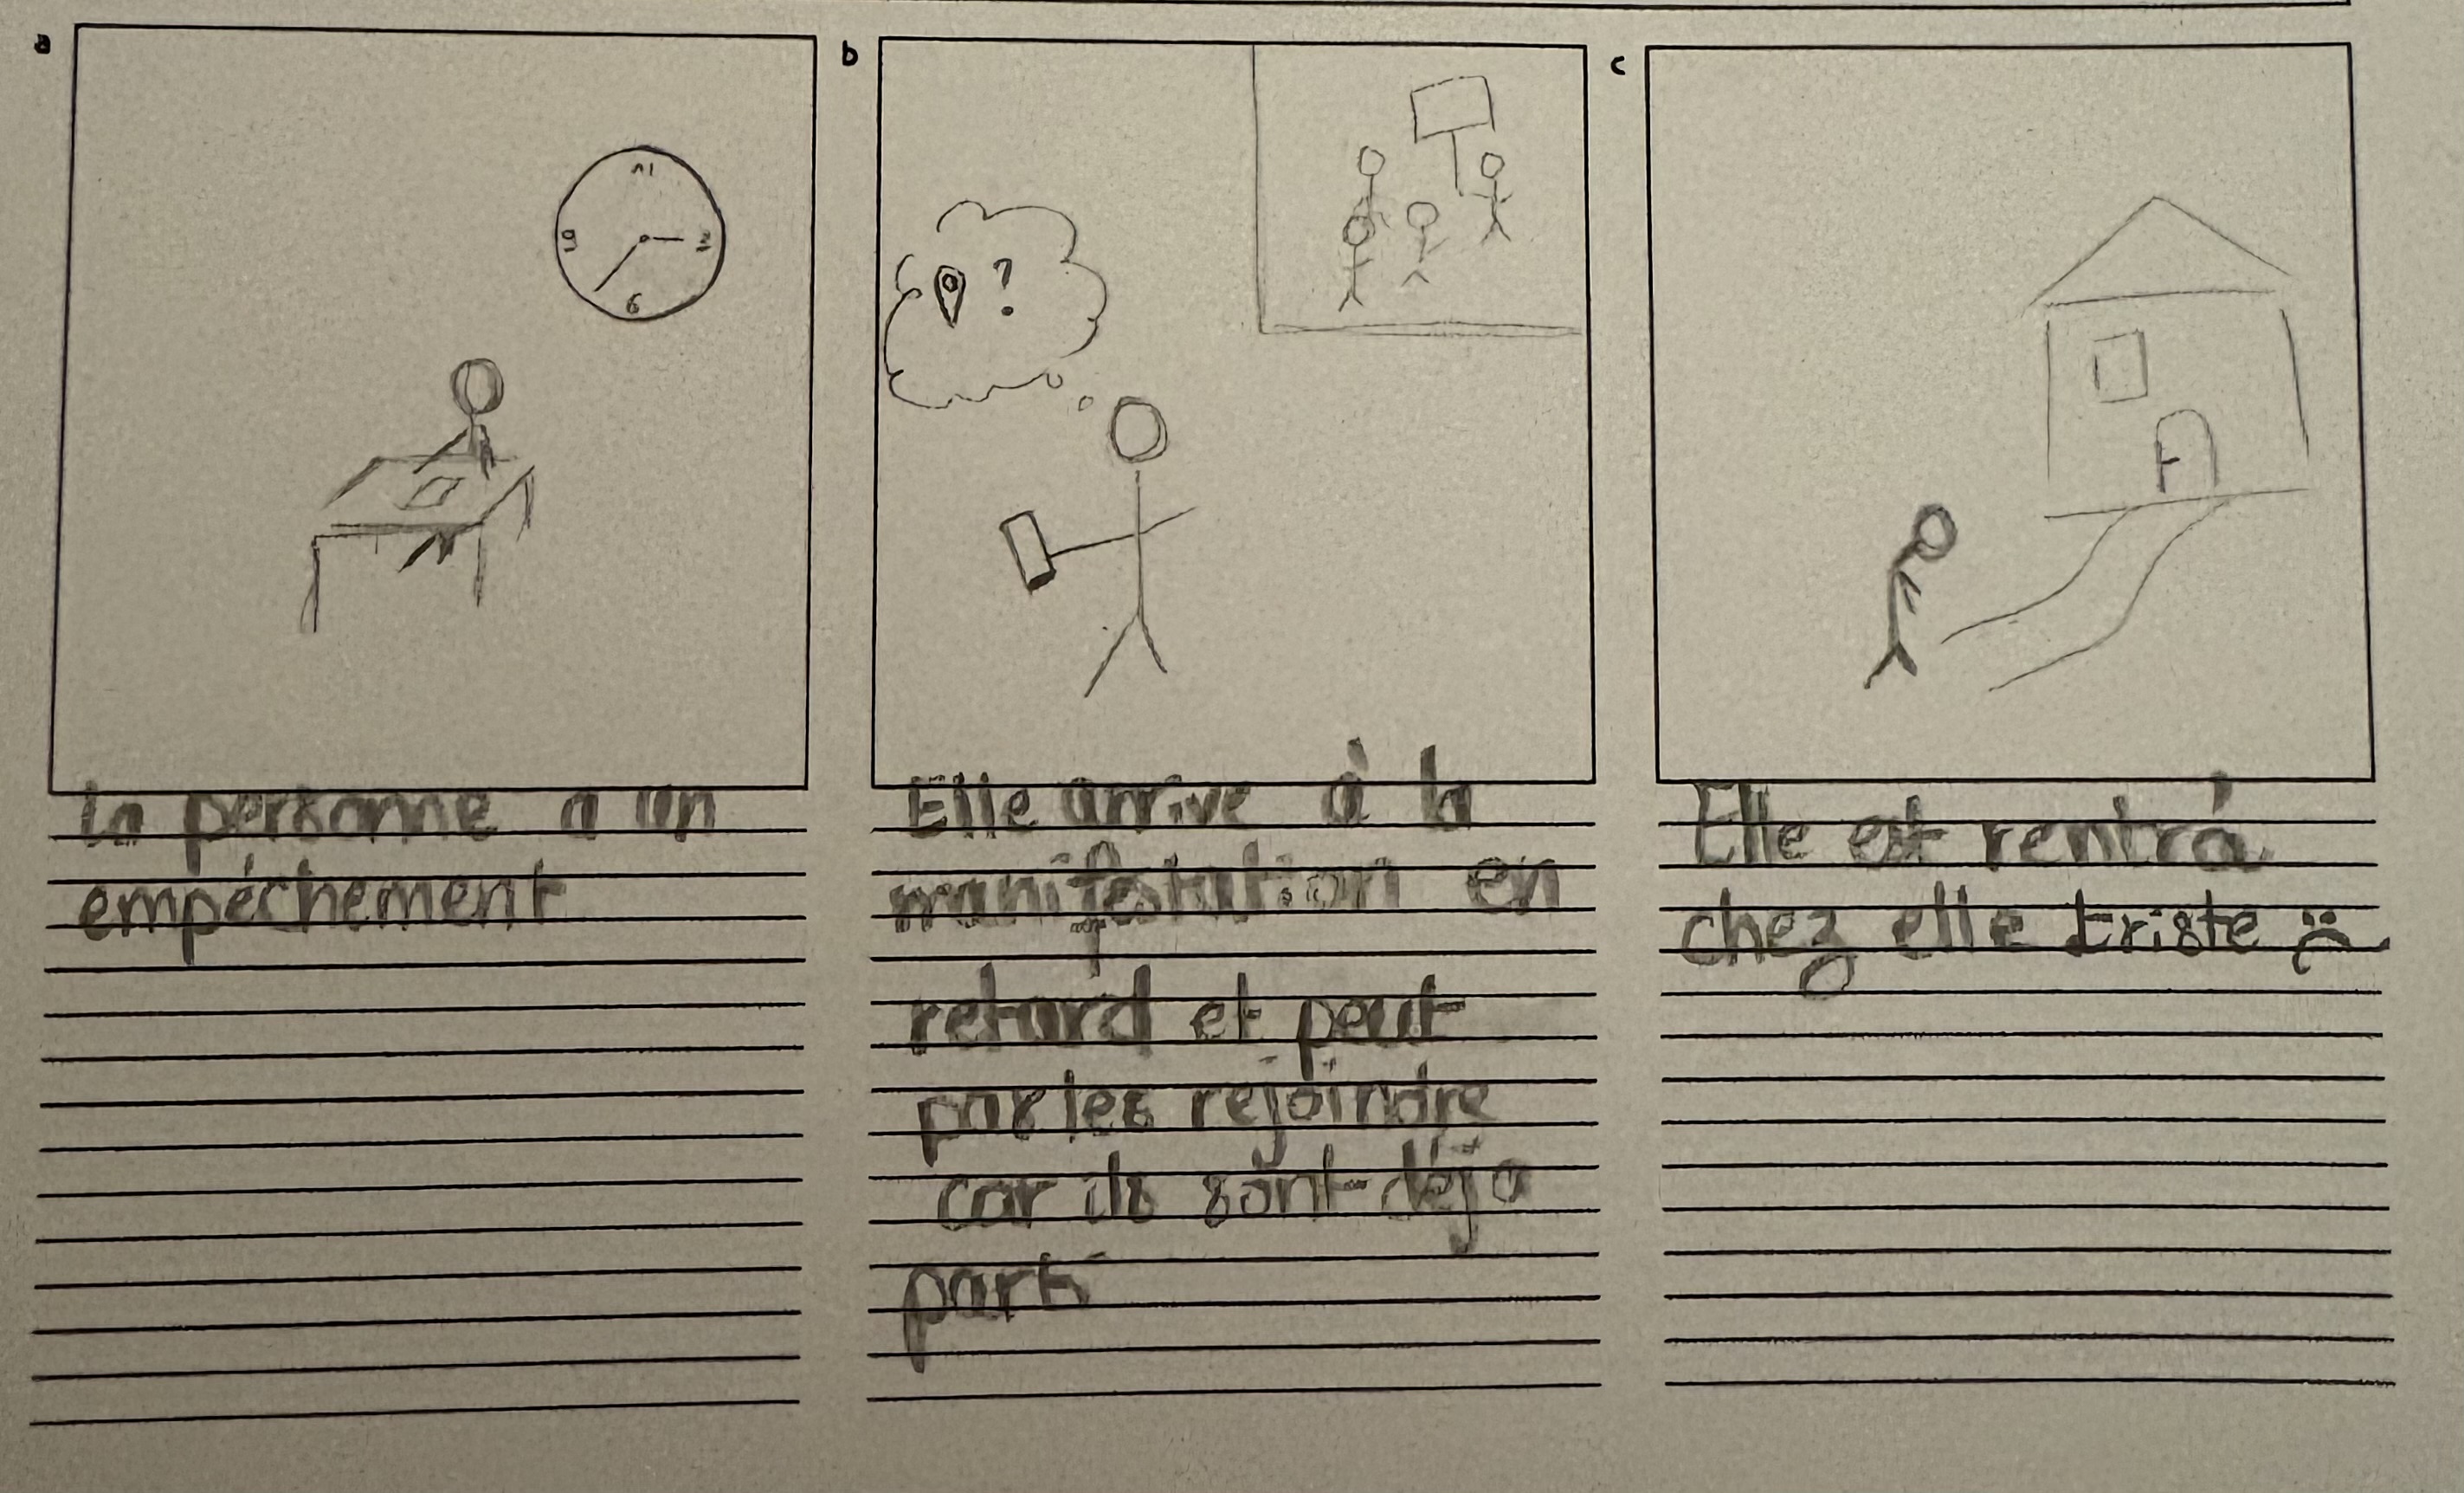 a
12
9
3
6
La personne a un
empéchement
b
?
Elle arrive à la
manifestation en
retard et peut
pas les rejoindre
car ils sont déjà
parti
c
Elle est rentrá
chez elle triste :(